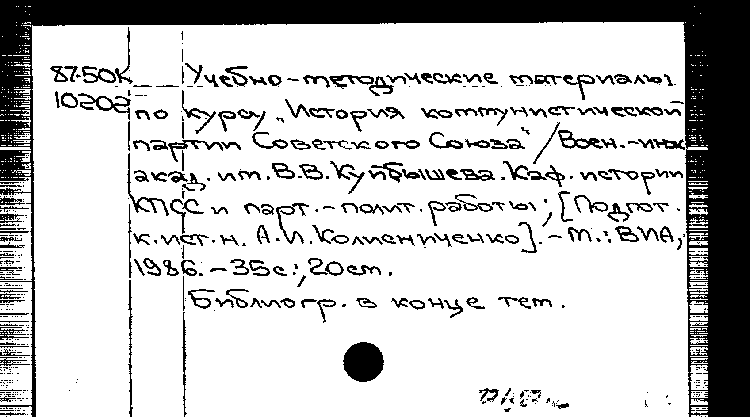 87-50К Учебно-методические материалы
10202 по курсу „История коммунистической
партии Советского Союза“ / Воен.-инж
акад. им. В.В. Куйбышева. Каф. истории
КПСС и парт.-полит. работы; [Подгот.
к.ист.н. А.И. Колисниченко]. - М.: ВИА,
1986. - 35с.; 20см.
Библиогр. в конце тем.